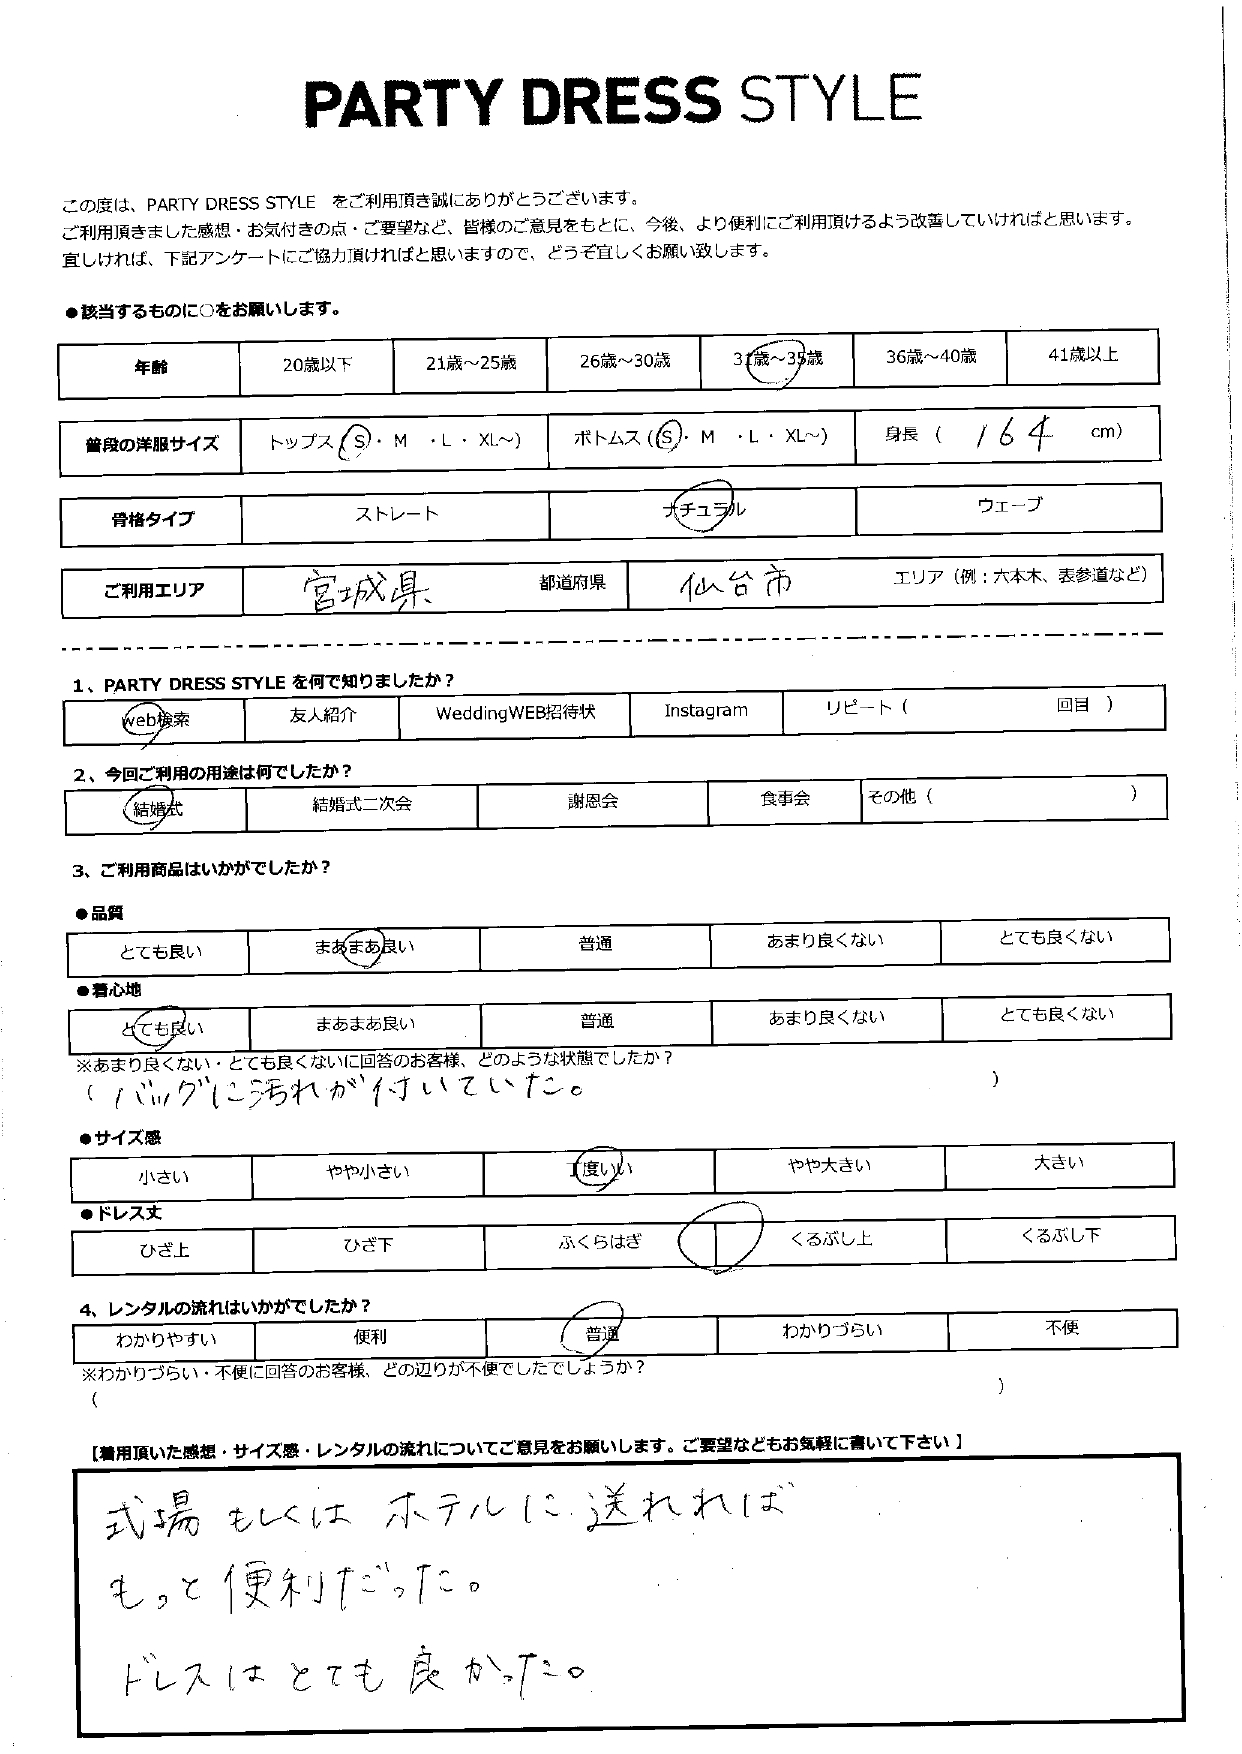 PARTY DRESS STYLE
この度は、PARTY DRESS STYLE をご利用頂き誠にありがとうございます。
ご利用頂きました感想・お気付きの点・ご要望など、皆様のご意見をもとに、今後、より便利にご利用頂けるよう改善していければと思います。
宜しければ、下記アンケートにご協力頂ければと思いますので、どうぞ宜しくお願い致します。
●該当するものに○をお願いします。
年齢 20歳以下 21歳～25歳 26歳～30歳 31歳～35歳 36歳～40歳 41歳以上
普段の洋服サイズ トップス（S・M ・L・XL～) ボトムス（S・M ・L・XL～) 身長（ 164 cm）
骨格タイプ ストレート ナチュラル ウェーブ
ご利用エリア 宮城県 都道府県 仙台市 エリア（例：六本木、表参道など）
1、PARTY DRESS STYLE を何で知りましたか？
web検索 友人紹介 WeddingWEB招待状 Instagram リピート（ 回目 ）
2、今回ご利用の用途は何でしたか？
結婚式 結婚式二次会 謝恩会 食事会 その他（ ）
3、ご利用商品はいかがでしたか？
●品質
とても良い まあまあ良い 普通 あまり良くない とても良くない
●着心地
とても良い まあまあ良い 普通 あまり良くない とても良くない
※あまり良くない・とても良くないに回答のお客様、どのような状態でしたか？
（ バッグに汚れが付いていた。 ）
●サイズ感
小さい やや小さい 丁度いい やや大きい 大きい
●ドレス丈
ひざ上 ひざ下 ふくらはぎ くるぶし上 くるぶし下
4、レンタルの流れはいかがでしたか？
わかりやすい 便利 普通 わかりづらい 不便
※わかりづらい・不便に回答のお客様、どの辺りが不便でしたでしょうか？
（ ）
【着用頂いた感想・サイズ感・レンタルの流れについてご意見をお願いします。ご要望などもお気軽に書いて下さい】
式場もしくはホテルに送れれば
もっと便利だった。
ドレスはとても良かった。